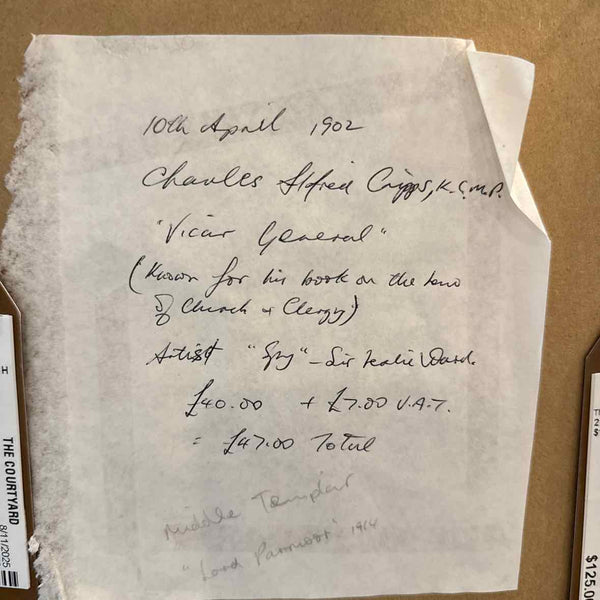 10th April 1902
Charles Alfred Cripps, K.C. M.P.
"Vicar General"
(Known for his book on the laws
of Church + Clergy)
Artist "Spy" – Sir Leslie Ward.
£40.00 + £7.00 V.A.T.
= £47.00 Total
Middle Templar
"Lord Parmoor" 1914
H
THE COURTYARD
8/11/2025
$125.0